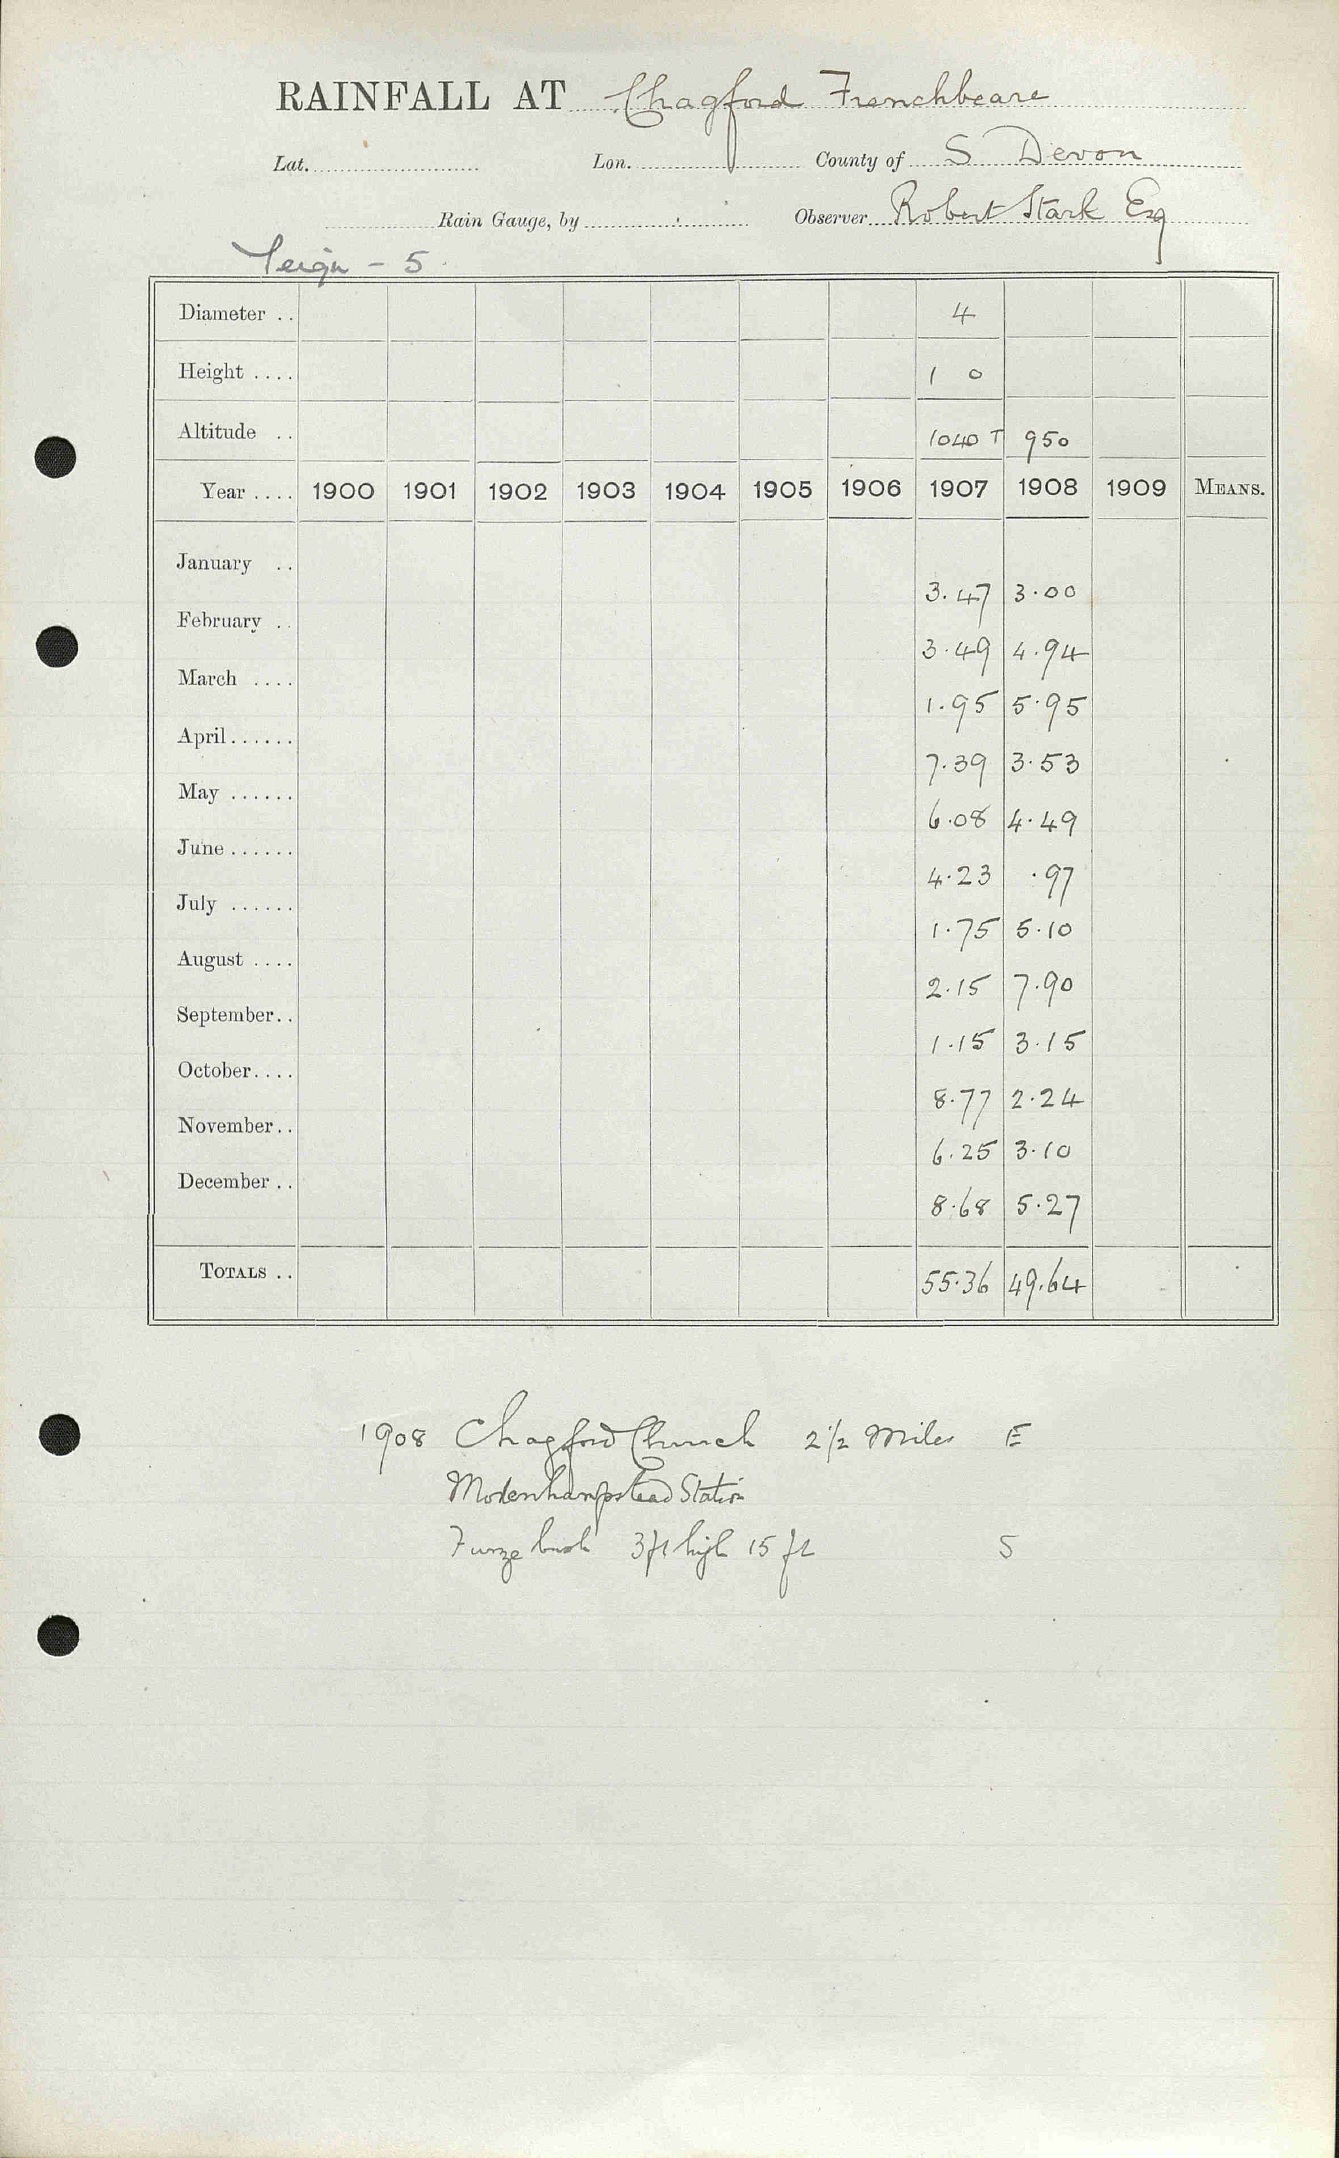 RAINFALL AT Chagford Frenchbeare
Lat. Lon. County of S Devon
Rain Gauge, by Observer Robert Stark Esq
Teign - 5
Diameter .. 4
Height .... 1 0
Altitude .. 1040 T 950
Year .... 1900 1901 1902 1903 1904 1905 1906 1907 1908 1909 MEANS.
January .. 3.47 3.00
February .. 3.49 4.94
March .... 1.95 5.95
April...... 7.39 3.53
May ...... 6.08 4.49
June ...... 4.23 .97
July ...... 1.75 5.10
August .... 2.15 7.90
September.. 1.15 3.15
October.... 8.77 2.24
November.. 6.25 3.10
December .. 8.68 5.27
TOTALS .. 55.36 49.64
1908 Chagford Church 2½ Miles E
Motenhampstead Station
Furze bush 3ft high 15 ft S